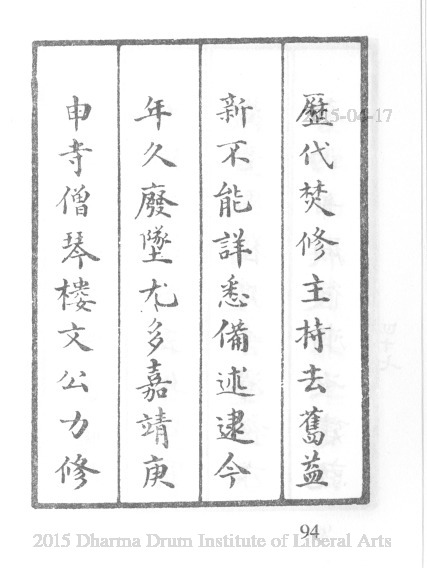 歷代焚修主持去舊益
新不能詳悉備述逮今
年久廢墜尤多嘉靖庚
申寺僧琴樓文公力修
2015-04-17
94
2015 Dharma Drum Institute of Liberal Arts